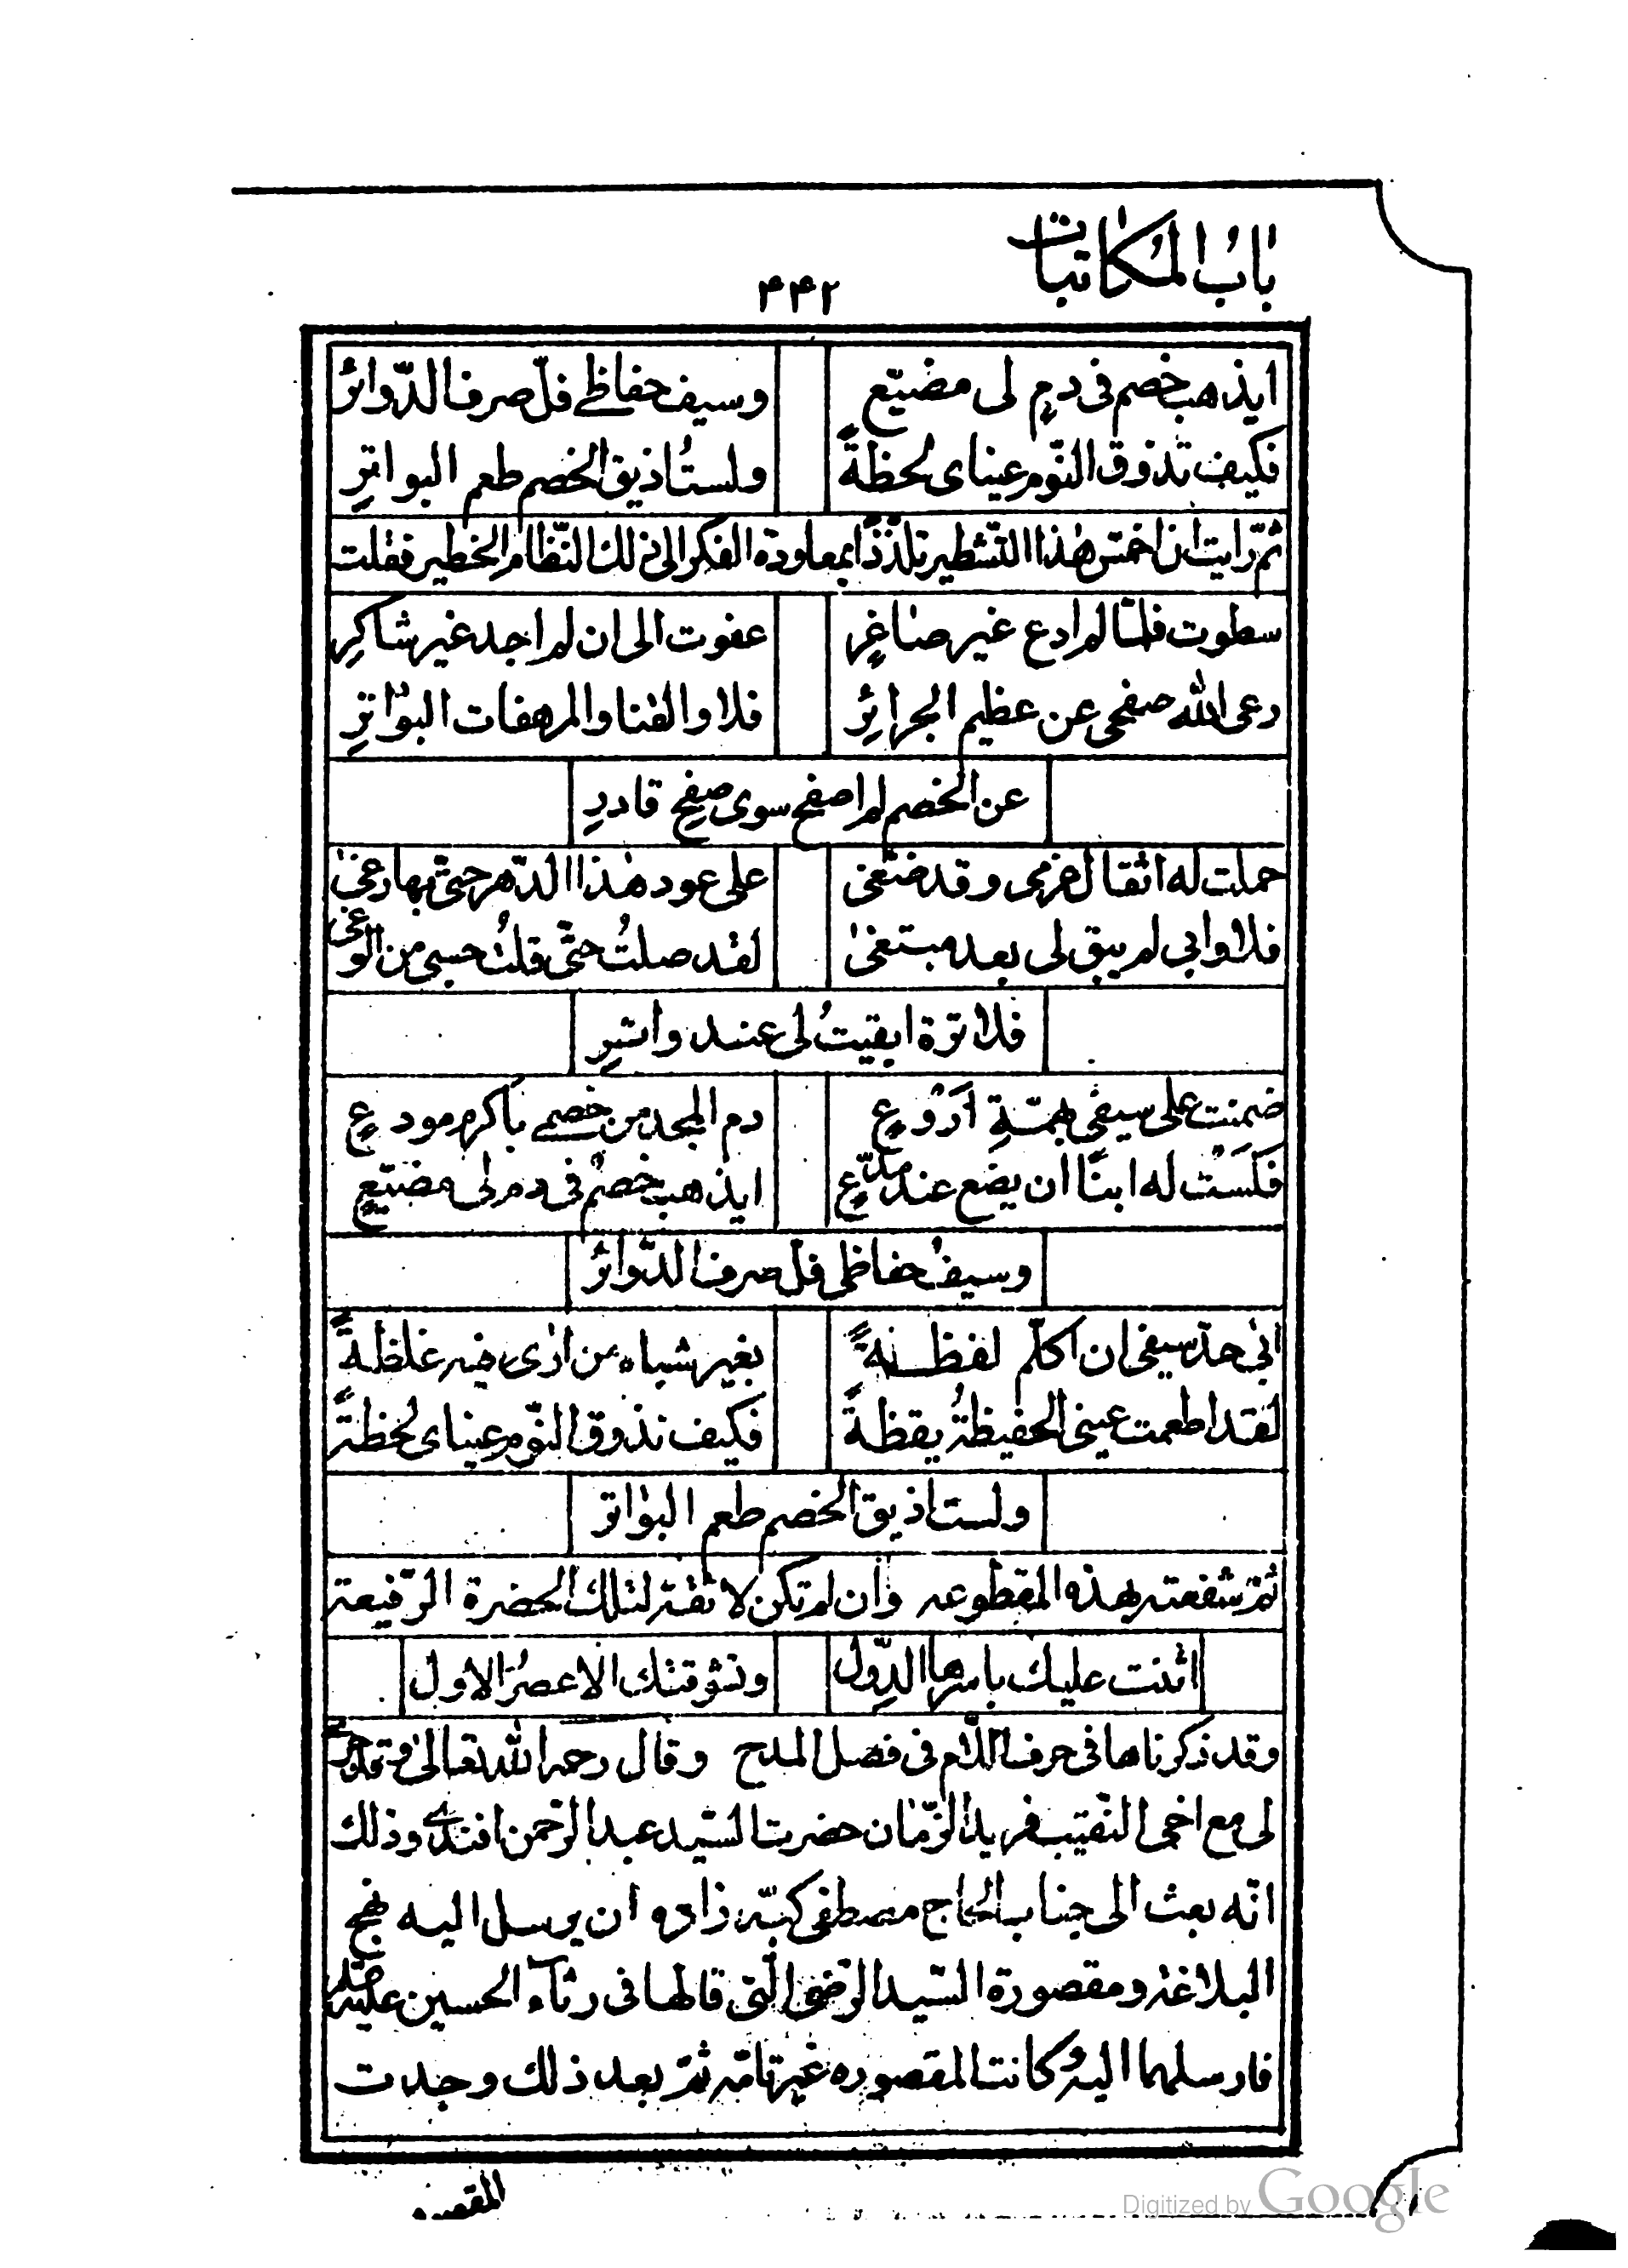 باب المكاتبات
۴۴۲
ايذهب خصم فى دمٍ لى مضيّع وسيف حفاظى فلّ صرف الدّوائرُ
فكيف تذوق النّوم عيناى لحظةً ولستُ اذيق الخصم طعم البواترِ
ثمّ رايت ان اخمّس هذا التشطير تلذّذاً بمعاودة الفكر الى ذلك النّظام الخطير فقلت
سطوت فلمّا لم ادع غير صاغرٍ عفوت الى ان لم اجد غير شاكرِ
رعى الله صفحى عن عظيم الجرائرِ فلا والقنا والمرهفات البواترِ
عن الخصم لم اصفح سوى صفح قادرِ
حملت له اثقال عزمى وقد ضغى على عود هذا الدّهر حتّى بها رغى
فلا وابى لم يبق لى بعد مبتغى لقد صلتُ حتّى قلتُ حسبى من الوغى
فلا ترة ابقيتُ لى عند واترِ
ضمنت على سيفى بهمّةِ اَرْوعٍ دم المجد من خصمى باكرم مودعٍ
فَلَسْتُ له ابنًا ان يضع عند مدّعٍ ايذهب خصمٌ فى دم لى مضيّعٍ
وسيفُ حفاظى فلّ صرف الدّوائرُ
ابى حدّ سيفى ان اكلّم لفظـةً بغير شباه من ارى فيه غلظةً
لقد اطعمت عينى الحفيظةُ يقظةً فكيف تذوق النّوم عيناى لحظةً
ولست اذيق الخصم طعم البواتر
ثمّ شفعته بهذه المقطوعه وان لم تكن لائقة لتلك الحضرة الرّفيعة
اثنت عليك باسرها الدِّول وتشوقتك الاعصُرُ الاول
وقد ذكرناها فى حرف اللّام فى فصل المدح وقال رحمه الله تعالى وقد جرى
لى مع اخى النّقيب فريد الزّمان حضرت السّيد عبد الرّحمن افندى وذلك
انّه بعث الى جناب الحاج مصطفى كبّه زاده ان يرسل اليه نهج
البلاغه ومقصورة السّيد الرّضى الّتى قالها فى رثآء الحسين عليه
فارسلهما اليه وكانت المقصوره غير تامّه ثمّ بعد ذلك وجدت
المقصوره